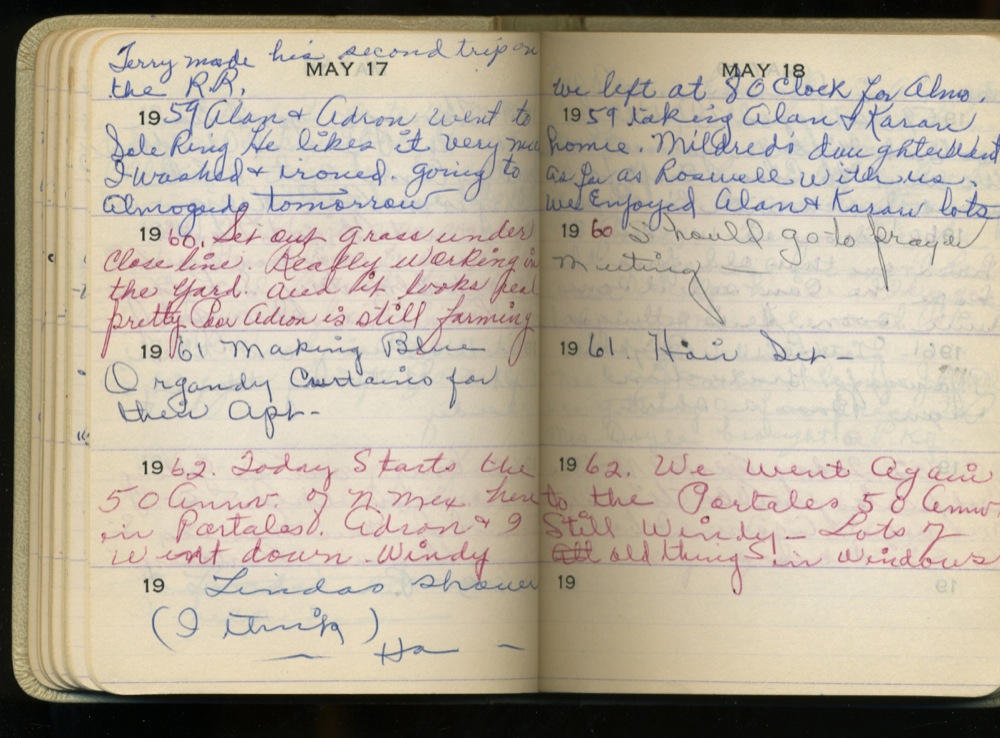 Terry made his second trip on
MAY 17
the R.R.
1959 Alan & Adron went to
Sole Ring He likes it very mu
I washed & ironed. going to
Almogordo tomorrow
1960. Set out grass under
Close line. Really working in
the yard. and it looks real
pretty Poor Adron is still farming
1961 Making Blue
Organdy Curtains for
their Apt-
1962. Today Starts the
50 Annv. of N Mex. here
in Portales. Adron & I
went down. Windy
19 Lindas shower
(I think)
Ha -
MAY 18
we left at 8 O Clock for Almo.
1959 taking Alan & Karan
home. Mildred's daughter went
as far as Roswell with us.
we Enjoyed Alan & Karan lots
1960 Should go to prayer
meeting -
1961. Hair Set -
1962. We Went Again
to the Portales 50 Annv.
Still Windy - Lots of
old things in windows
19